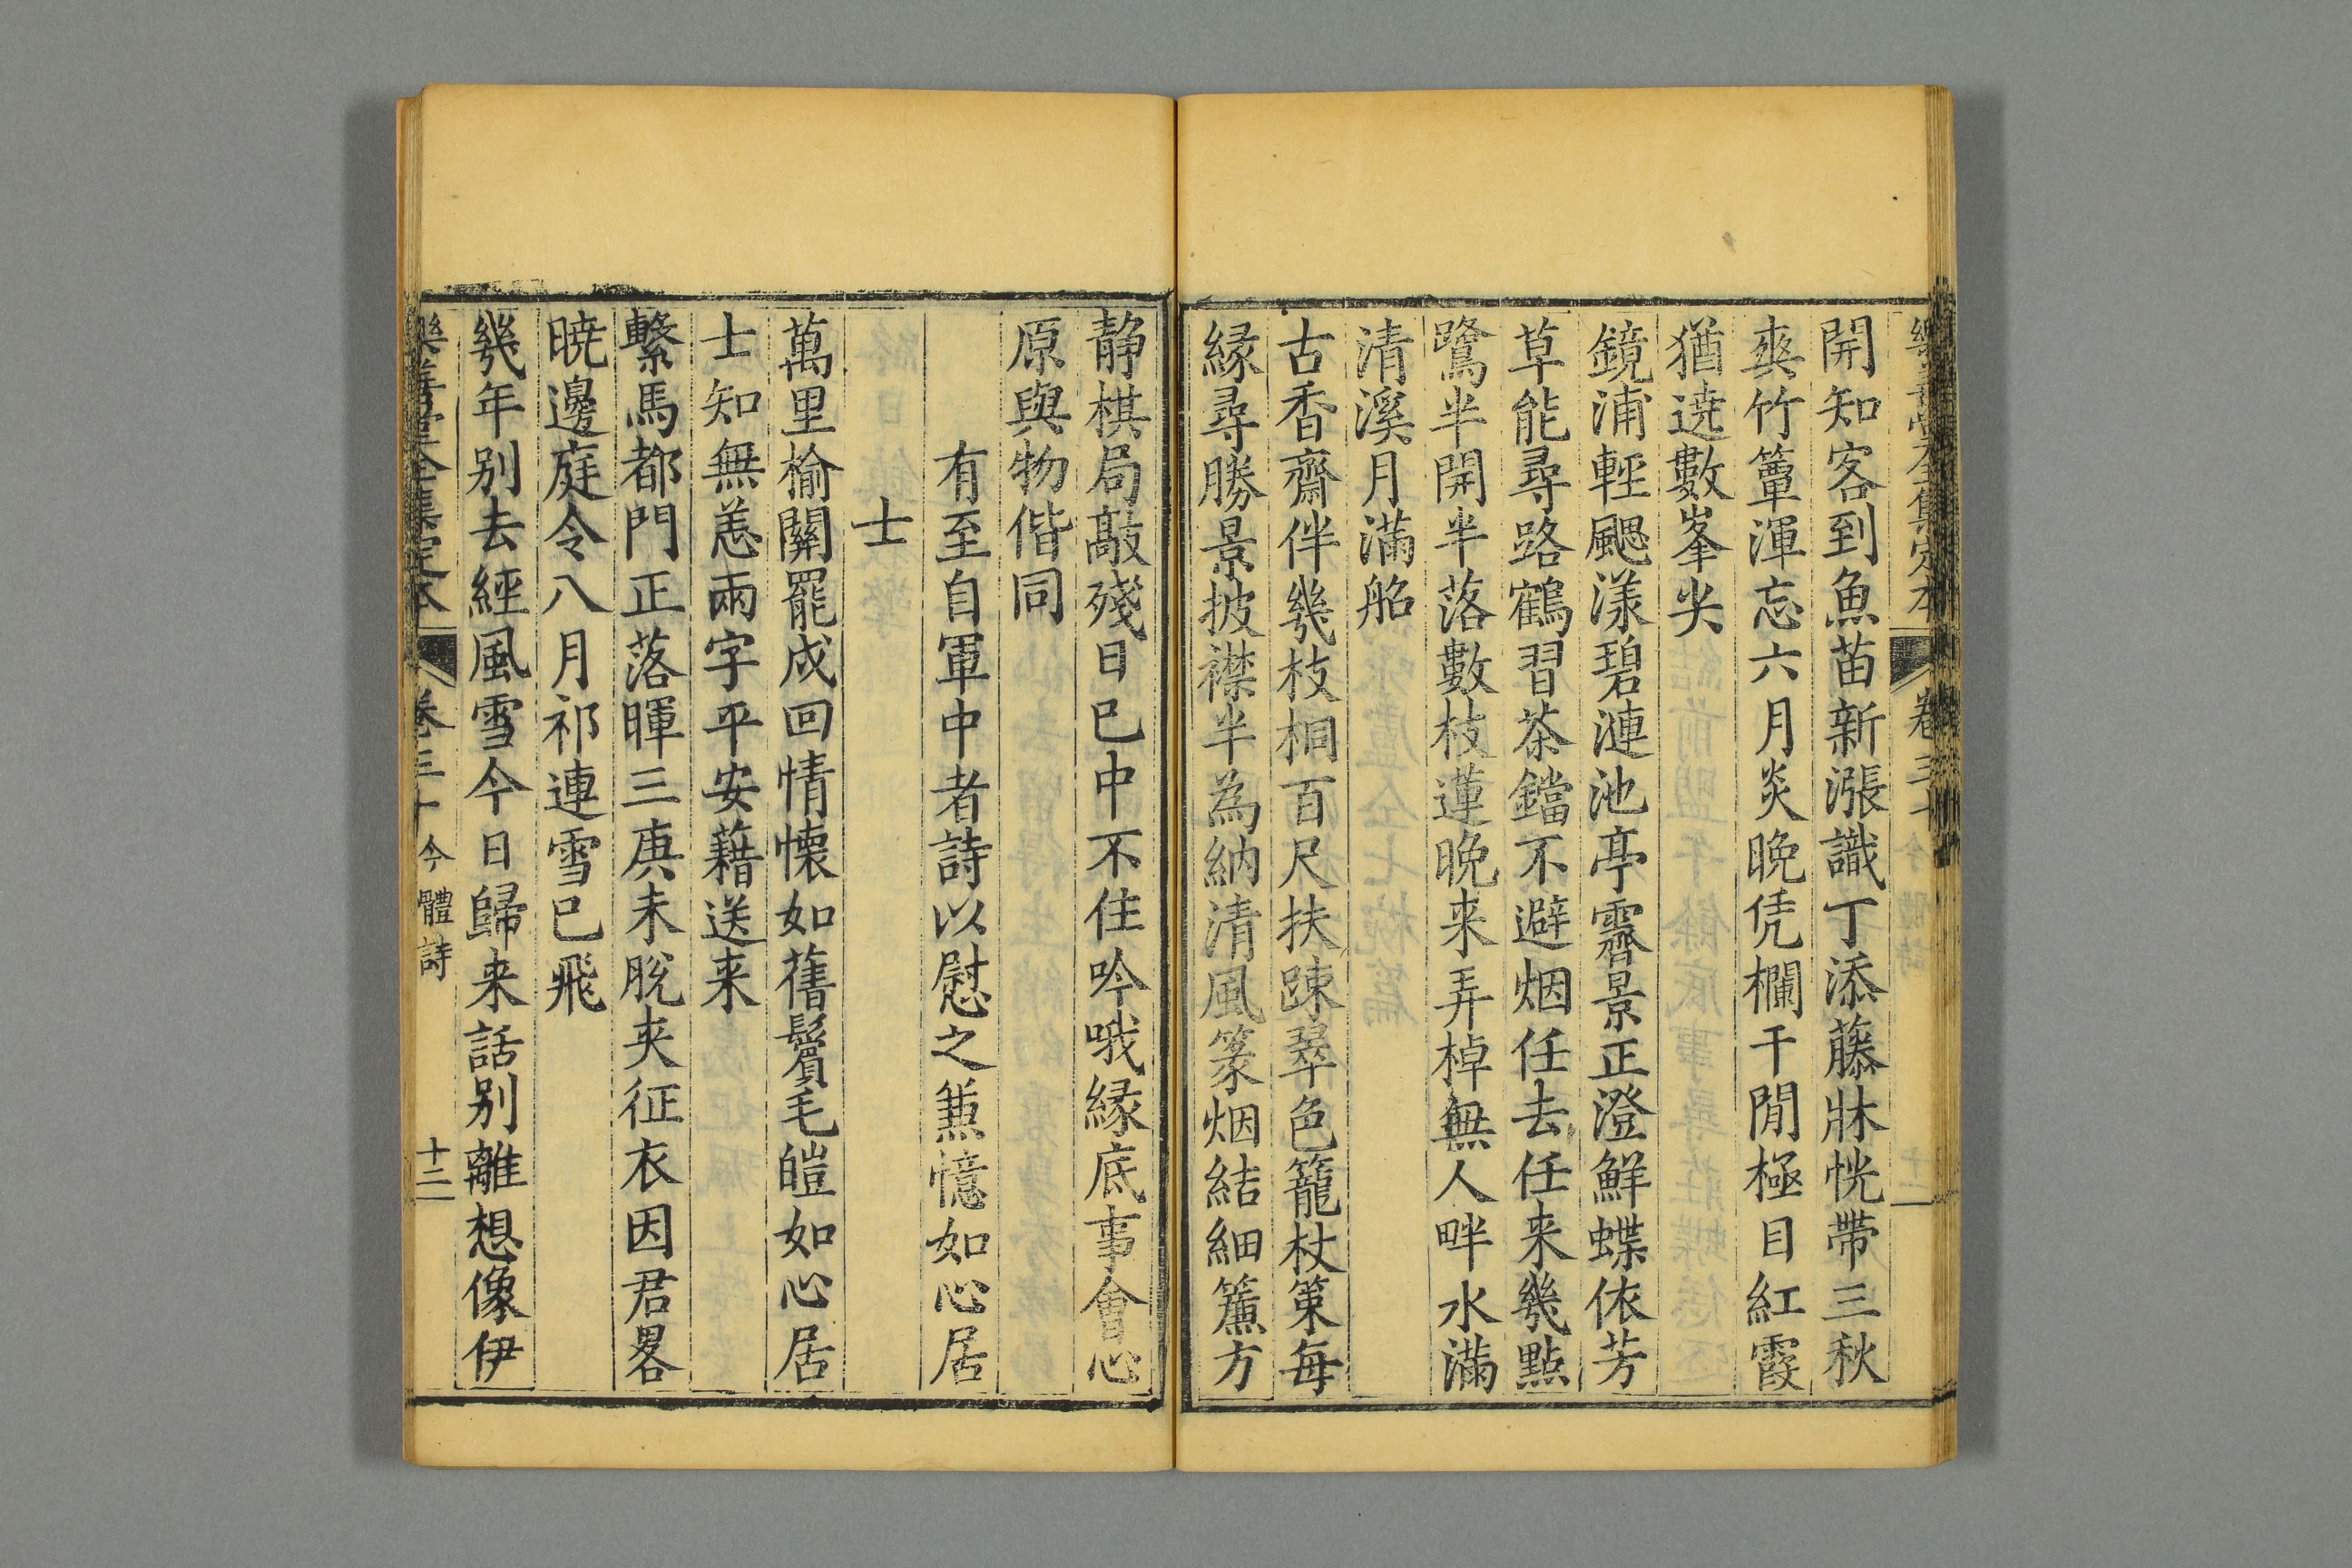 開知客到魚苗新漲識丁添藤牀恍帶三秋
爽竹簟渾忘六月炎晚凭欄干閒極目紅霞
猶遶數峯尖
鏡浦輕颸漾碧漣池亭霽景正澄鮮蝶依芳
草能尋路鶴習茶鐺不避烟任去任来幾點
鷺半開半落數枝蓮晚来弄棹無人畔水滿
清溪月滿船
古香齋伴幾枝桐百尺扶踈翠色籠杖策每
緣尋勝景披襟半為納清風篆烟結細簾方
静棋局敲殘日已中不住吟哦緣底事會心
原與物偕同
有至自軍中者詩以慰之兼憶如心居
士
萬里榆關罷戍回情懷如舊鬢毛皚如心居
士知無恙兩字平安藉送来
繫馬都門正落暉三庚未脫夾征衣因君畧
曉邊庭令八月祁連雪已飛
幾年別去經風雪今日歸来話別離想像伊
樂善堂全集定本 卷三十 今體詩 十二